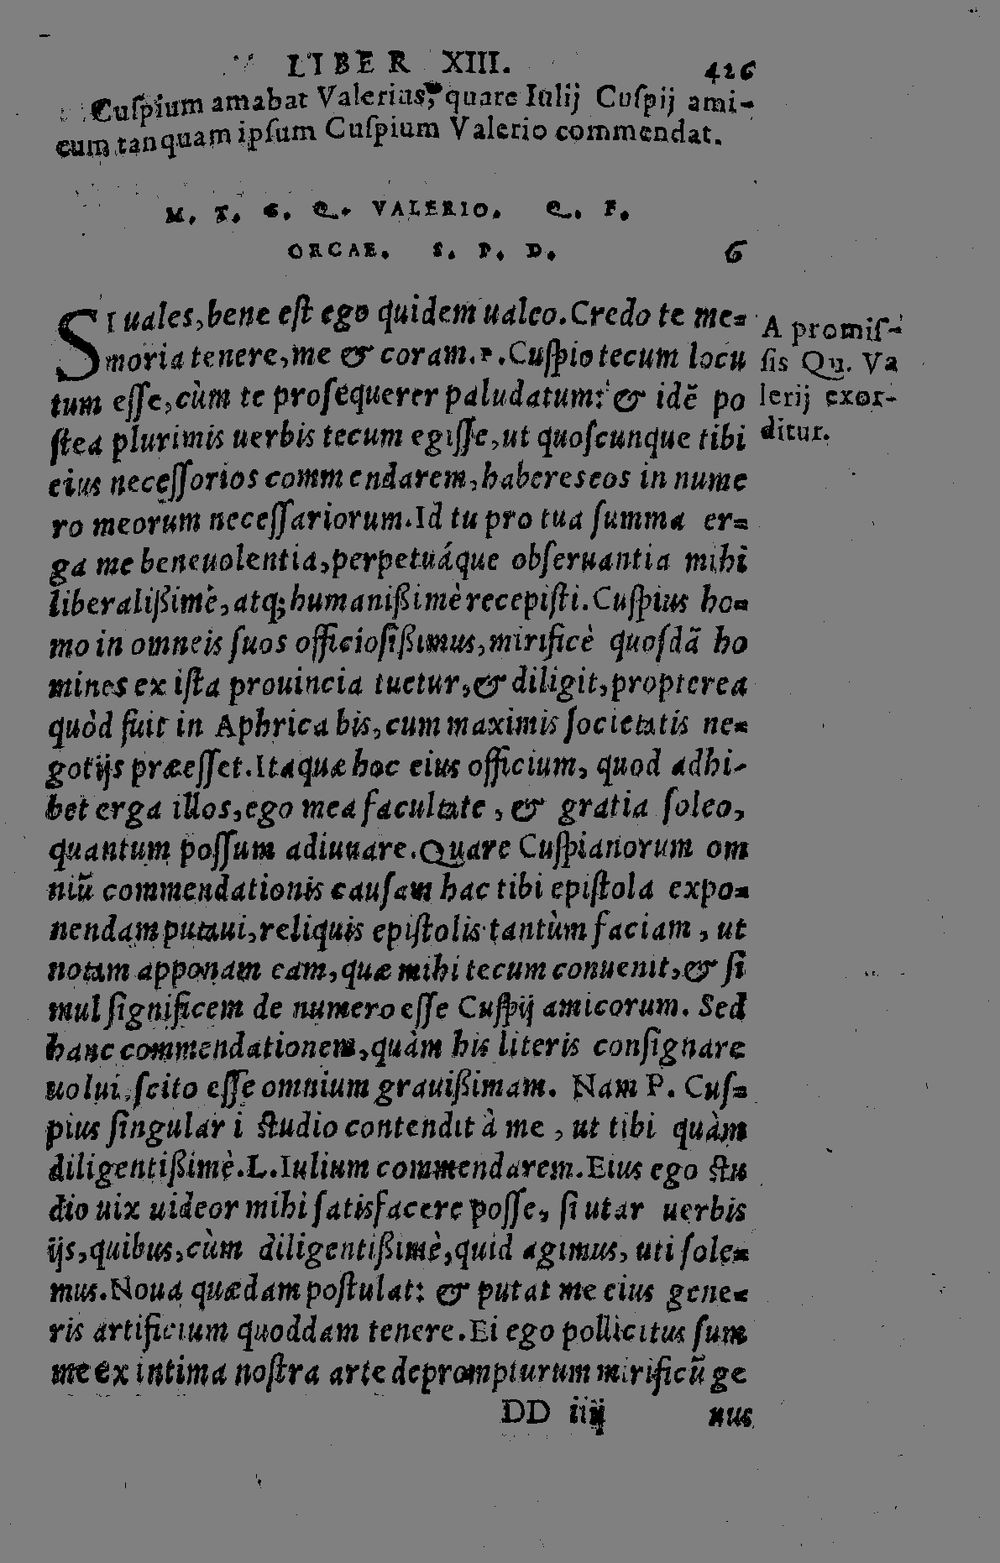 LIBER XIII. 426
Cuſpium amabat Valerius, quare Iulij Cuſpij ami-
cum tanquam ipſum Cuſpium Valerio commendat.
M. T. C. Q. VALERIO. Q. F.
ORCAE. S. P. D. 6
SI uales, bene eſt ego quidem ualeo. Credo te me=
moria tenere, me & coram. P. Cuſpio tecum locu
tum eſſe, cùm te proſequerer paludatum: & idē po
ſtea plurimis uerbis tecum egiſſe, ut quoſcunque tibi
eius neceſſorios commendarem, habereseos in nume
ro meorum neceſſariorum. Id tu pro tua ſumma er=
ga me beneuolentia, perpetuáque obſeruantia mihi
liberalißimè, atq; humanißimè recepiſti. Cuſpius ho=
mo in omneis ſuos officioſißimus, mirificè quoſdā ho
mines ex iſta prouincia tuetur, & diligit, propterea
quòd fuit in Aphrica bis, cum maximis ſocietatis ne=
gotijs præeſſet. Itaquæ hoc eius officium, quod adhi-
bet erga illos, ego mea facultate, & gratia ſoleo,
quantum poſſum adiuuare. Quare Cuſpianorum om
niū commendationis cauſam hac tibi epiſtola expo=
nendam putaui, reliquis epiſtolis tantùm faciam, ut
notam apponam eam, quæ mihi tecum conuenit, & ſi
mul ſignificem de numero eſſe Cuſpij amicorum. Sed
hanc commendationem, quàm his literis conſignare
uolui, ſcito eſſe omnium grauißimam. Nam P. Cuſ=
pius ſingulari ſtudio contendit à me, ut tibi quàm
diligentißimè. L. Iulium commendarem. Eius ego ſtu
dio uix uideor mihi ſatisfacere poſſe, ſi utar uerbis
ijs, quibus, cùm diligentißimè, quid agimus, uti ſole=
mus. Noua quædam poſtulat: & putat me eius gene=
ris artificium quoddam tenere. Ei ego pollicitus ſum
me ex intima noſtra arte deprompturum mirificū ge
DD iiij nus
A promiſ-
ſis Qu. Va
lerij exor-
ditur.